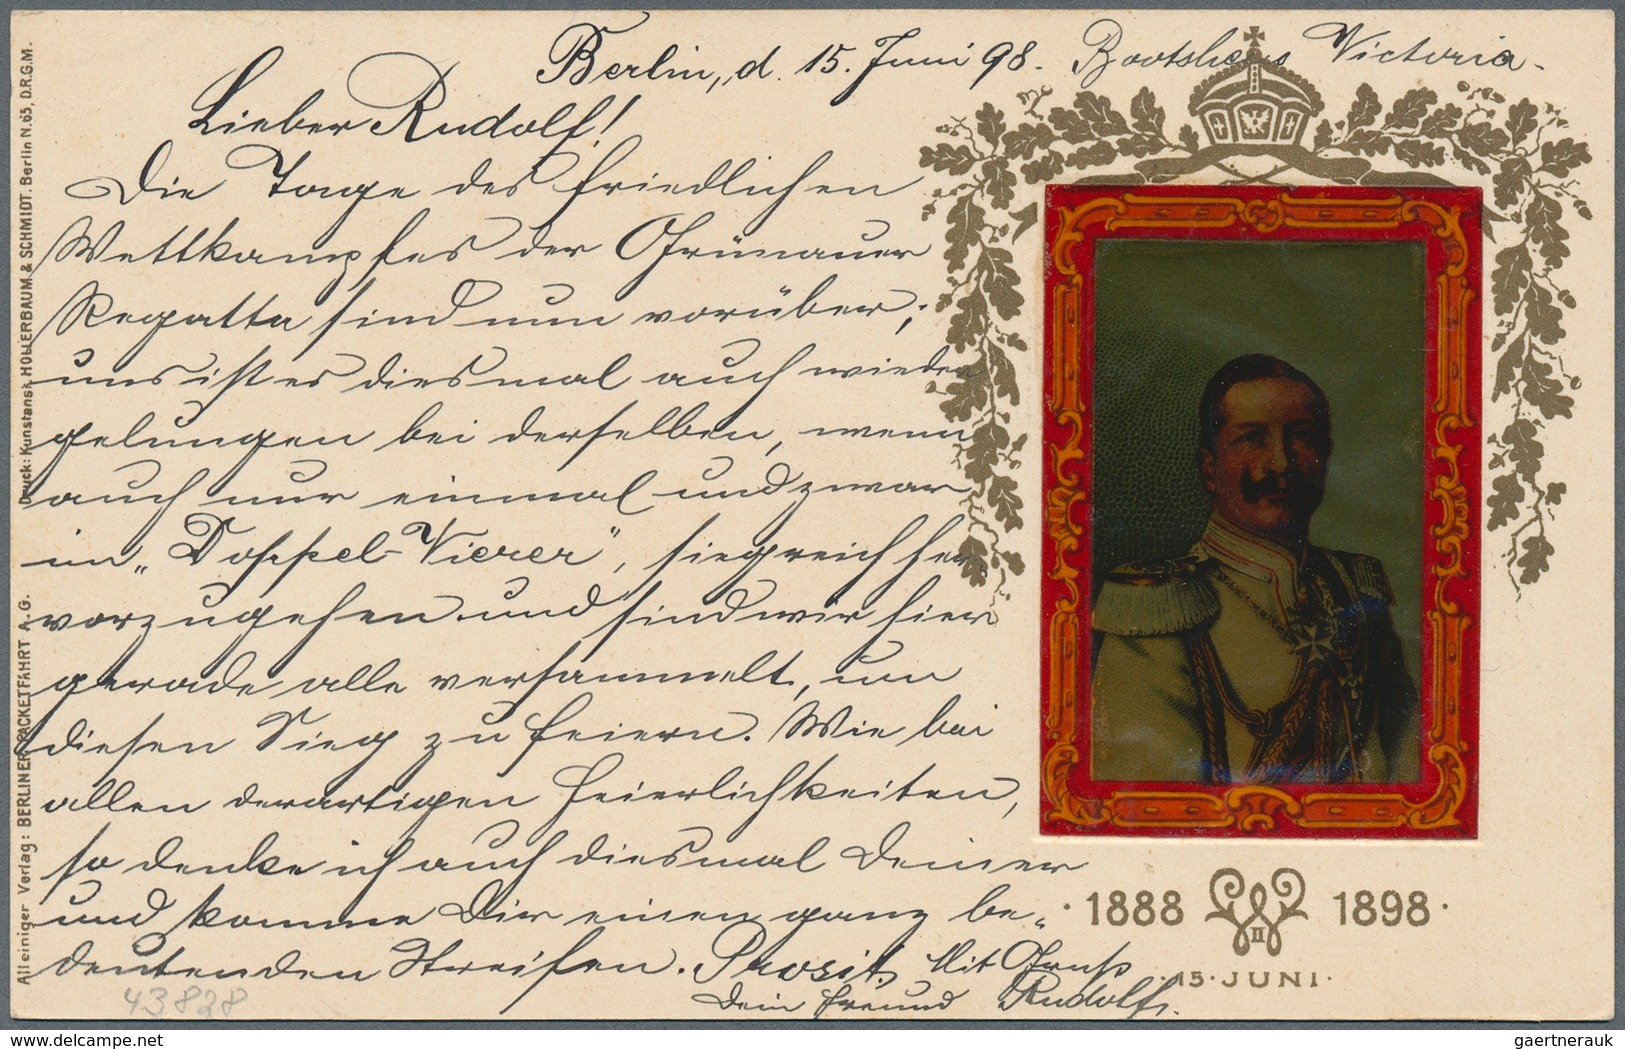 Berlin, d. 15. Juni 98. Bootshaus Victoria.
Lieber Rudolf!
Die Tage des friedlichen
Wettkampfes der Grünauer
Regatta sind nun vorüber,
uns ist es diesmal auch wieder
gelungen bei derselben, wenn
auch nur einmal und zwar
im „Doppel-Vierer", siegreich her-
vorzugehen und sind wir hier
gerade alle versammelt, um
diesen Sieg zu feiern. Wie bei
allen derartigen Feierlichkeiten,
so denke ich auch diesmal Deiner
und komme Dir einen ganz be-
deutenden Streifen. Prosit. Mit Gruß
Dein Freund Rudolf.
·1888 W II 1898·
·15·JUNI·
Alleiniger Verlag: BERLINER PACKETFAHRT A.G. Druck: Kunstanst. HOLLERBAUM & SCHMIDT. Berlin N.65, D.R.G.M.
43828
delcampe.net
gaertnerauk